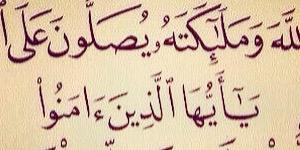 للَّهَ وَمَلَٰٓئِكَتَهُۥ يُصَلُّونَ عَلَى
يَٰٓأَيُّهَا ٱلَّذِينَ ءَامَنُوا۟